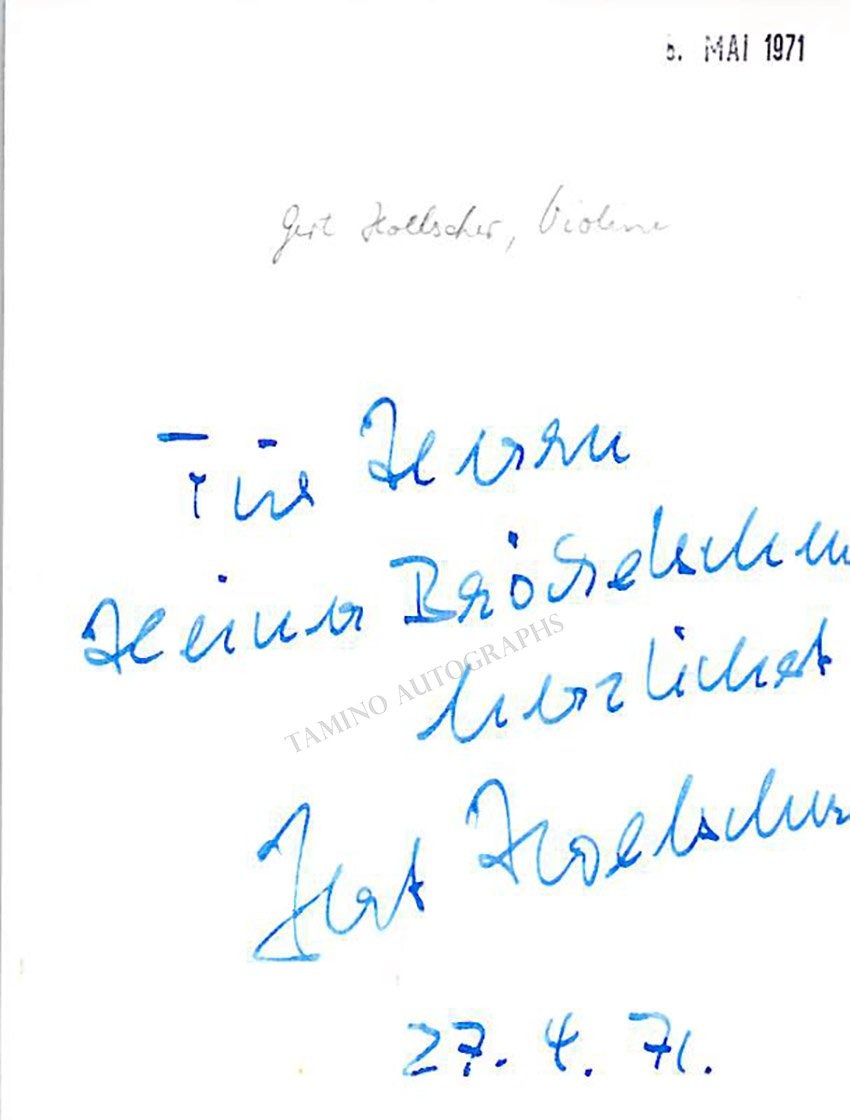 MAI 1971
Gert Hoelscher, Violine
Für Herrn
Heiner
herzlichst
TAMINO AUTOGRAPHS
Gert Hoelscher
27. 4. 71.